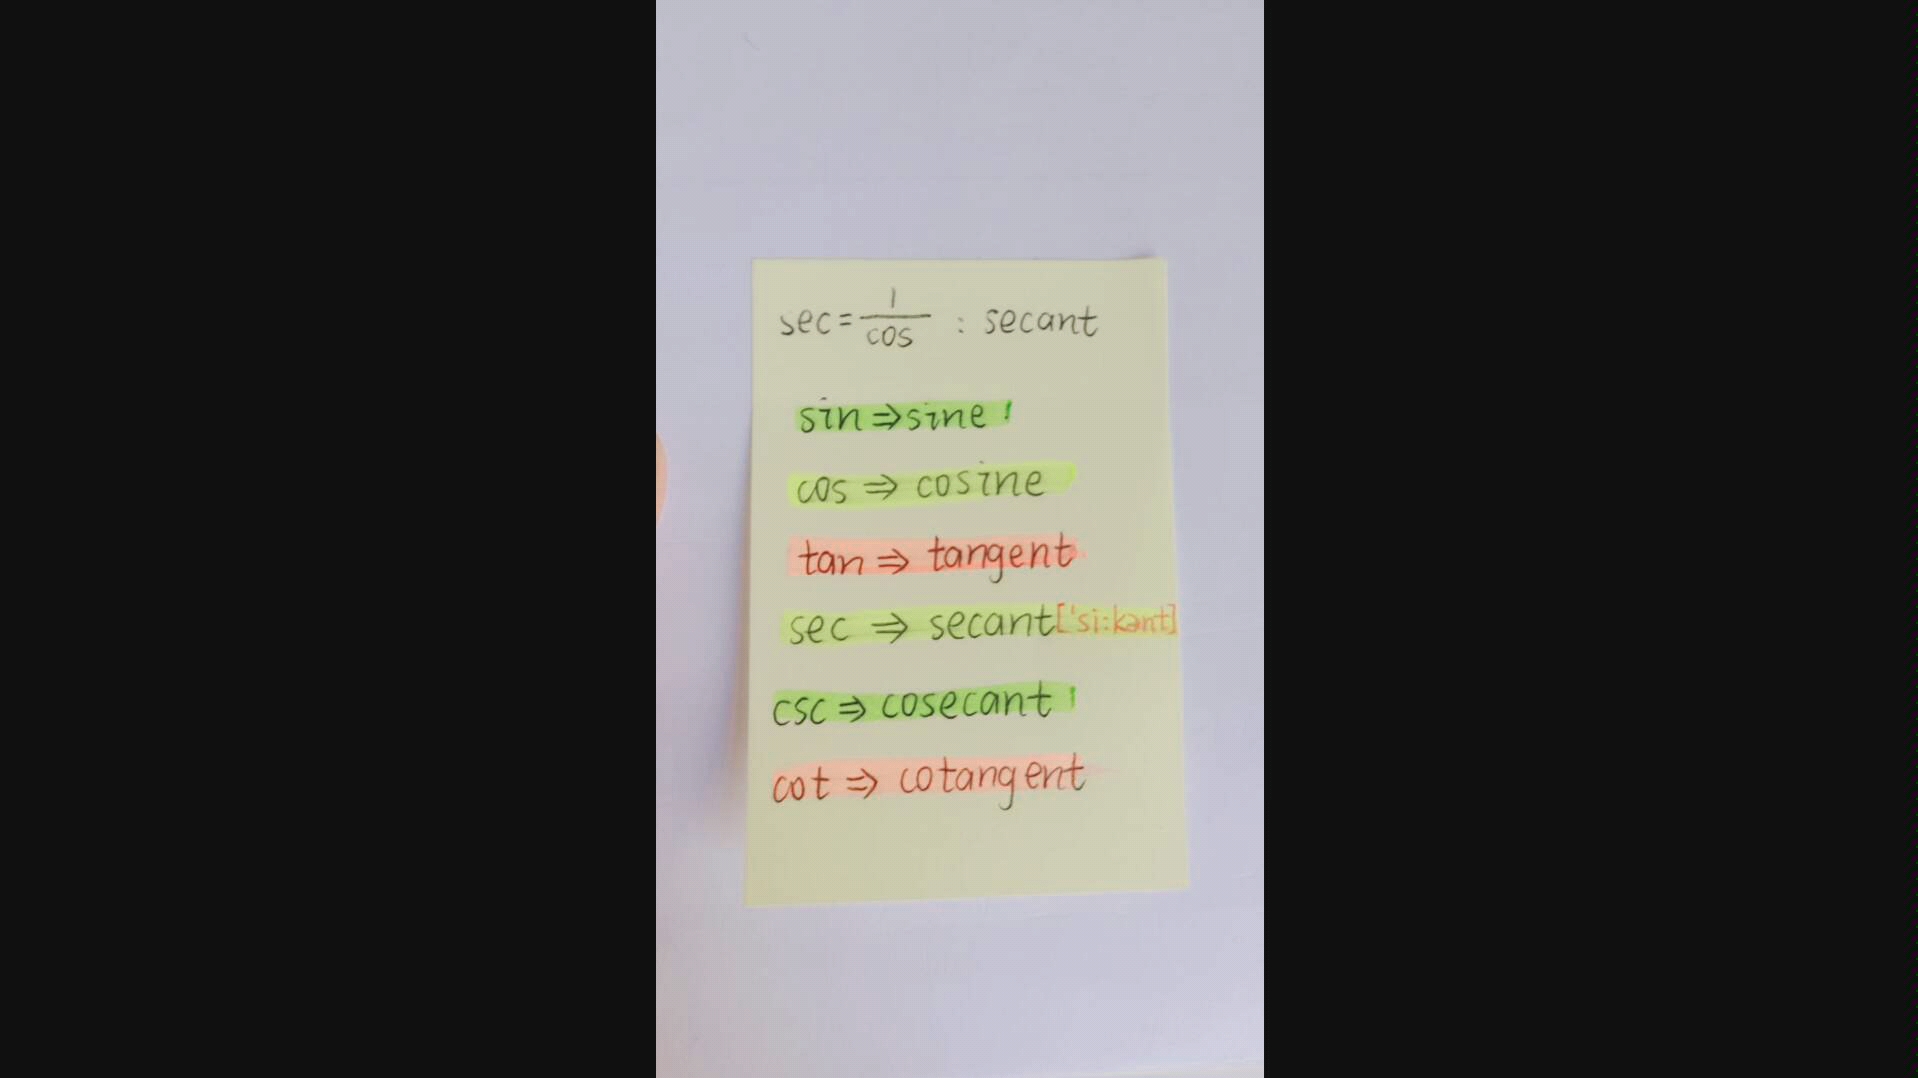 sec = 1/cos : secant
sin ⇒ sine
cos ⇒ cosine
tan ⇒ tangent
sec ⇒ secant ['si:kənt]
csc ⇒ cosecant
cot ⇒ cotangent